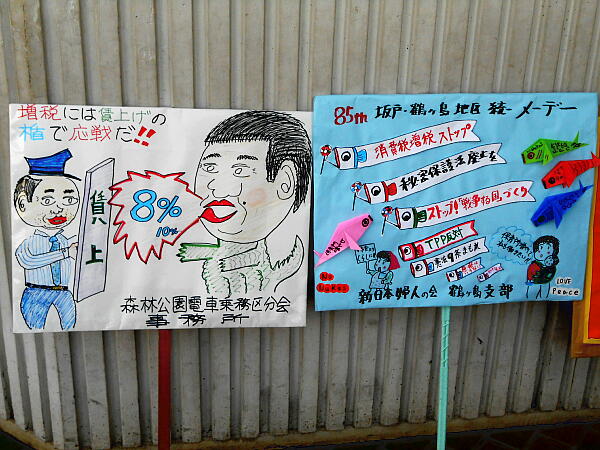 増税には賃上げの
楯で応戦だ!!
賃上
8%
10%
森林公園電車乗務区分会
事務所
85th 坂戸・鶴ヶ島地区 統一メーデー
消費税増税ストップ
秘密保護法廃止を
ストップ!戦争する国づくり
TPP反対
憲法9条まもれ
No Nukes
LOVE Peace
新日本婦人の会 鶴ヶ島支部